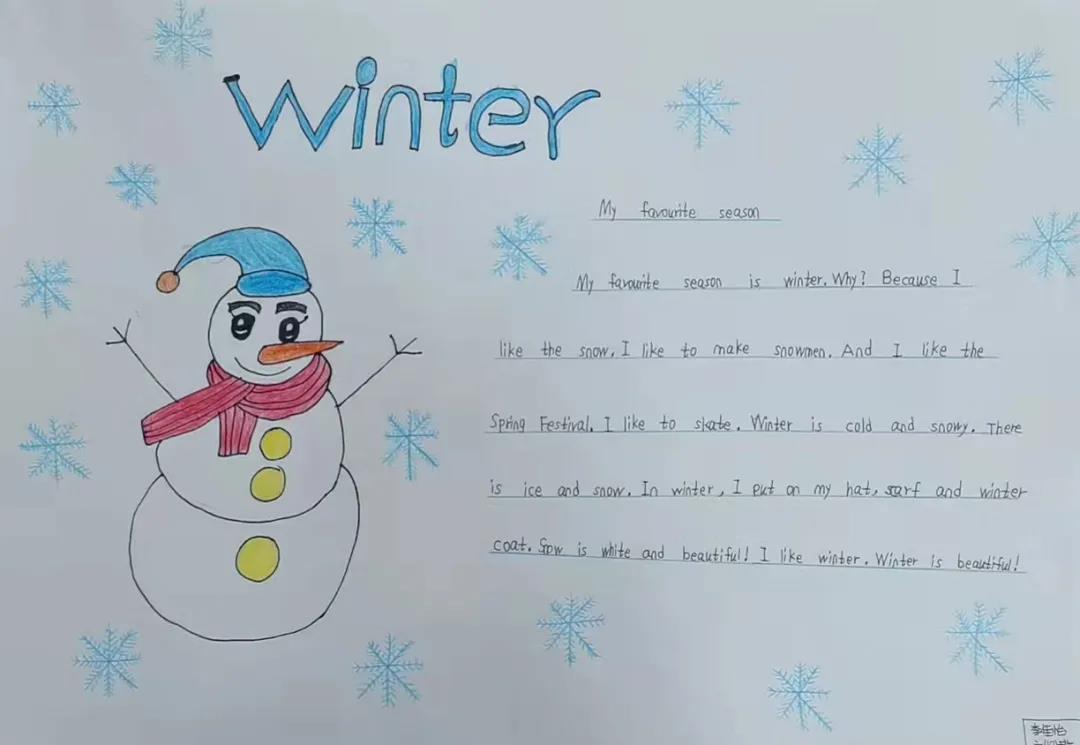 Winter
My favourite season
My favourite season is winter. Why? Because I
like the snow. I like to make snowmen. And I like the
Spring Festival. I like to skate. Winter is cold and snowy. There
is ice and snow. In winter, I put on my hat, sarf and winter
coat. Sow is white and beautiful! I like winter. Winter is beautiful!
李佳怡